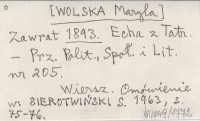 [WOLSKA Maryla]
Zawrat 1893. Echa z Tatr.
- Prz. Polit., Społ. i Lit.
nr 205.
Wiersz. Omówienie
w: SIEROTWIŃSKI S. 1963, s.
75-76.